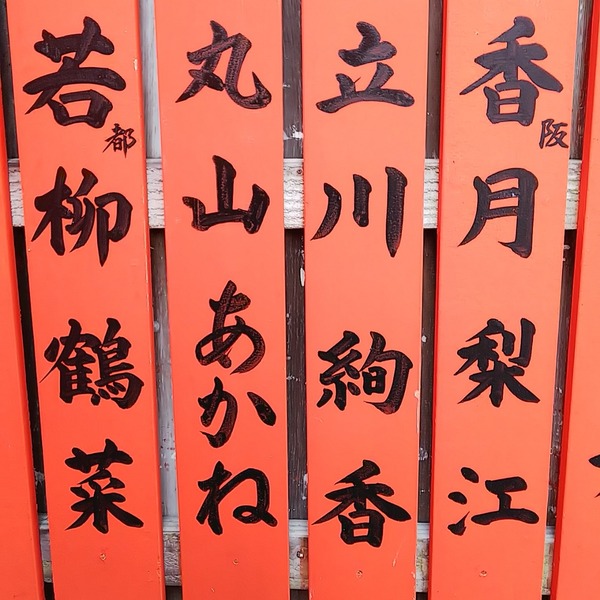 香阪月梨江
立川絢香
丸山あかね
若都柳鶴菜